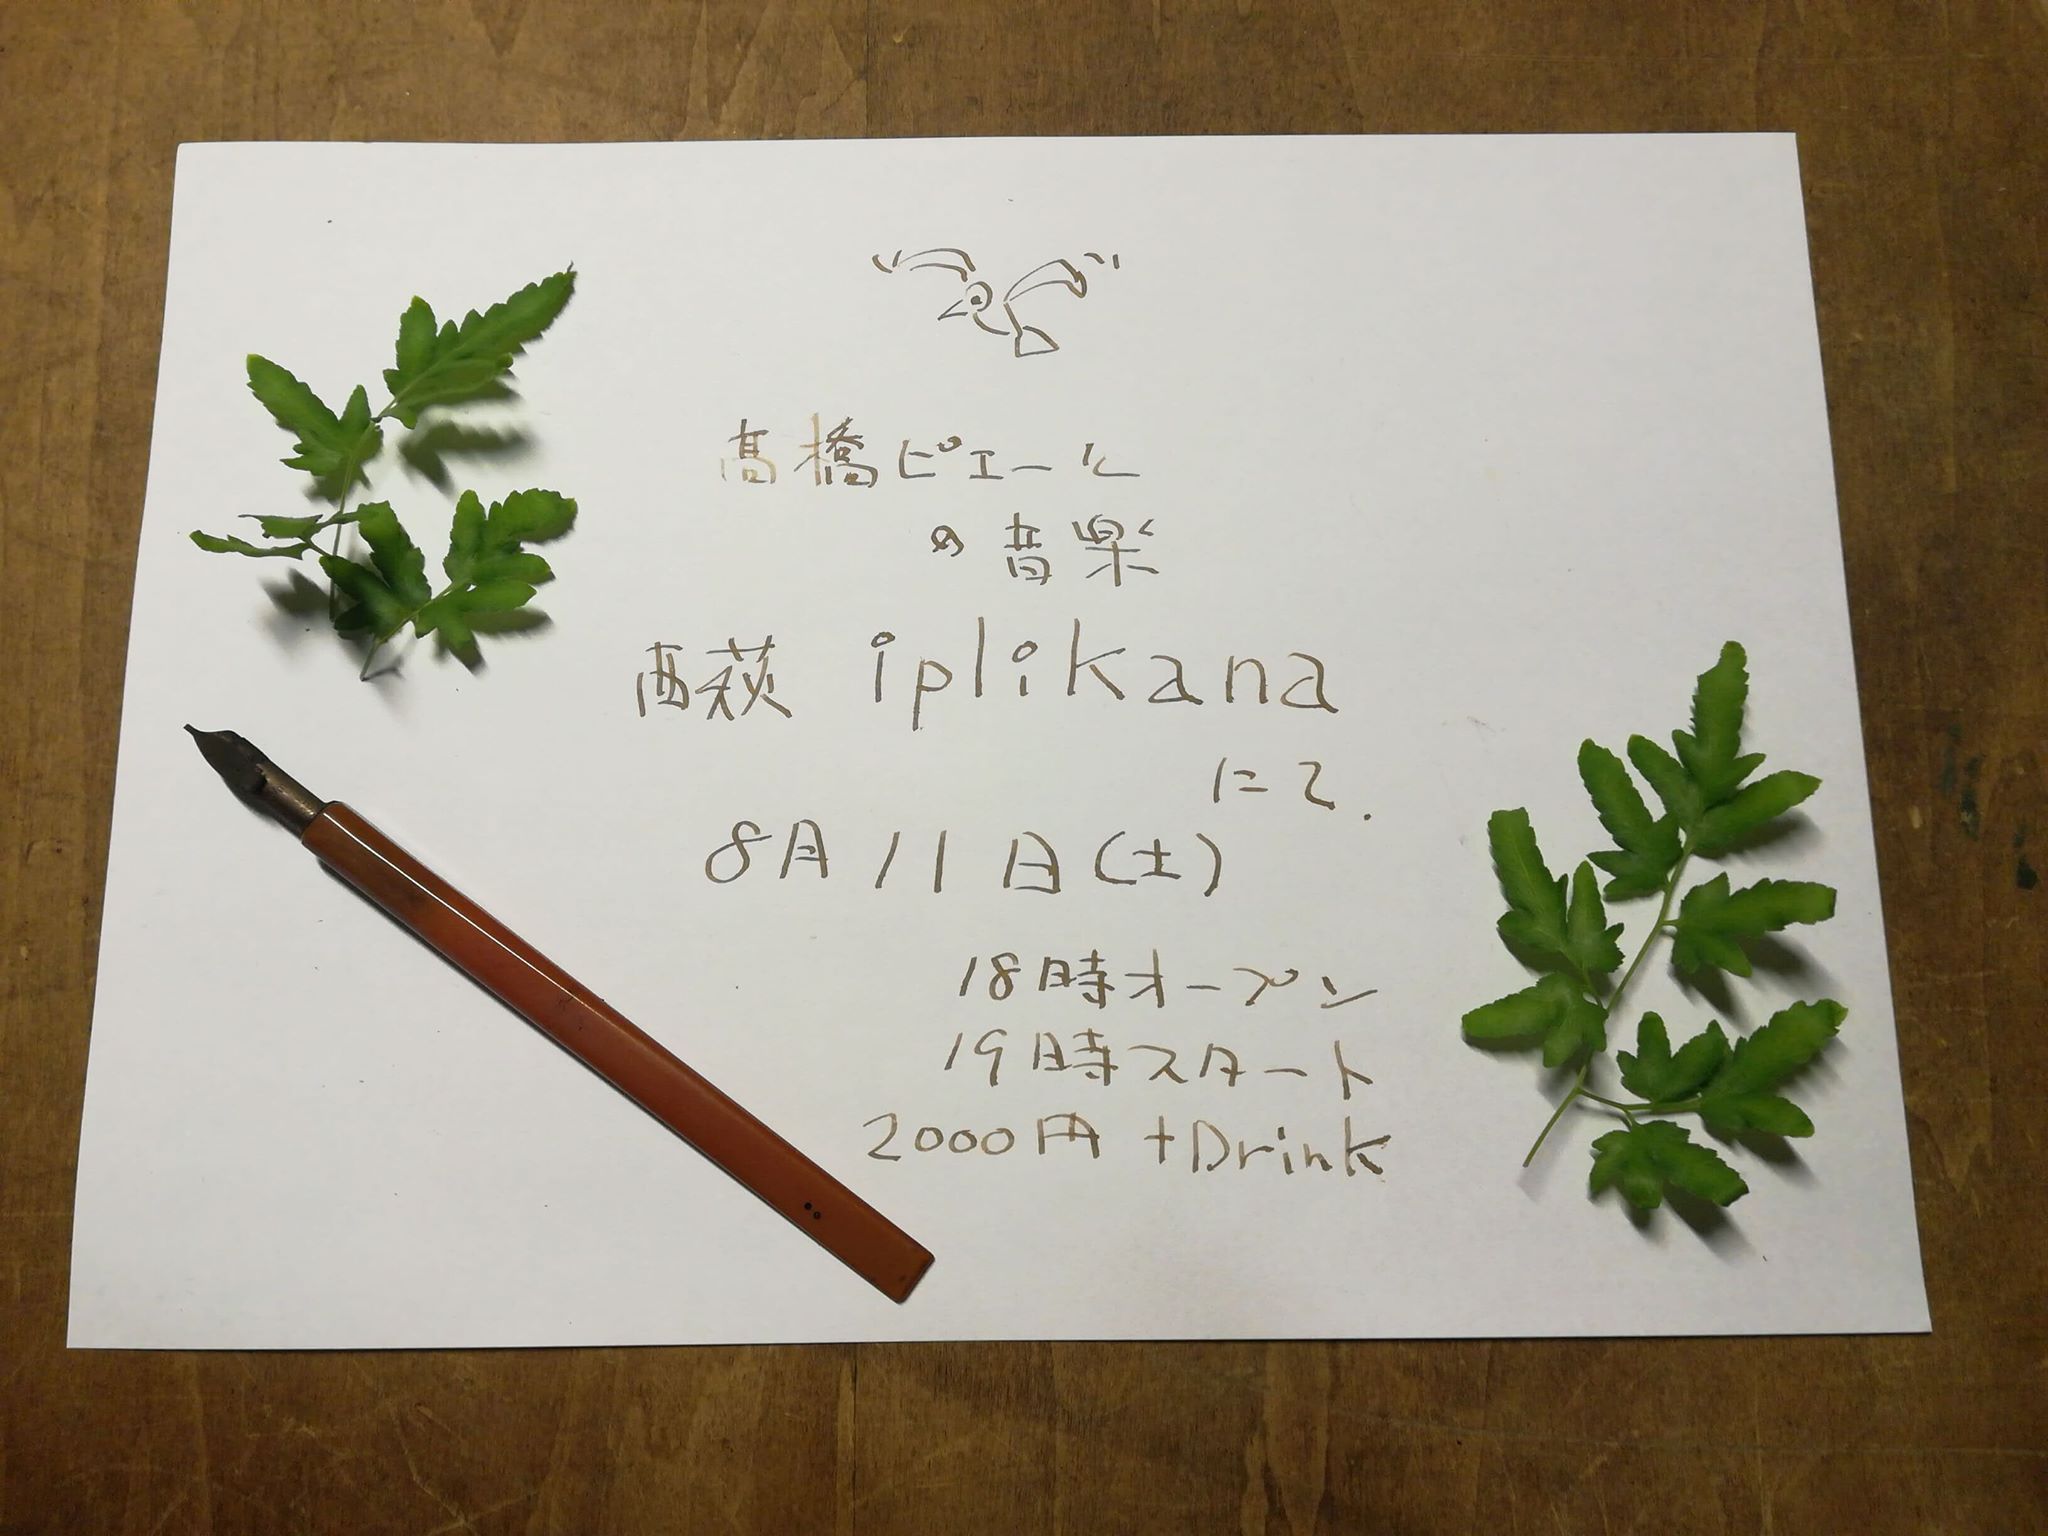 髙橋ピエール
の音楽
西荻 iplikana
にて.
8月11日(土)
18時オープン
19時スタート
2000円 +Drink